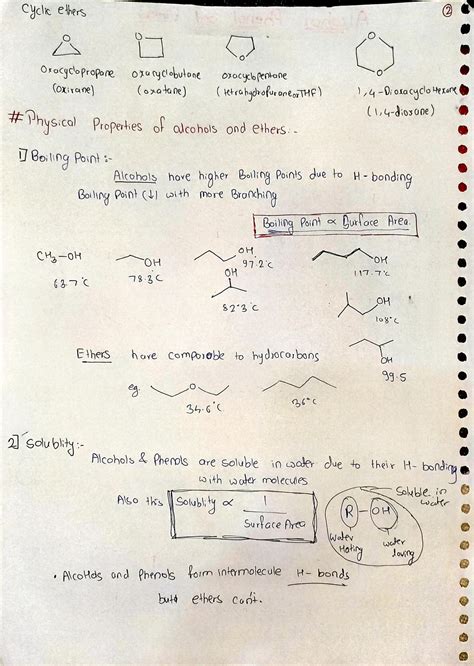 Cyclic ethers
2
Oxacyclopropane
(oxirane)
oxacyclobutane
(oxatane)
oxacyclopentane
(tetrahydrofurane or THF)
1,4-Dioxacyclohexane
(1,4-dioxane)
# Physical Properties of alcohols and ethers:-
1] Boiling Point:-
Alcohols have higher Boiling Points due to H-bonding
Boiling Point (↓) with more Branching
Boiling Point ∝ Surface Area.
CH3-OH
63.7°C
OH
78.3°C
OH
97.2°C
OH
82.3°C
OH
117.7°C
OH
108°C
OH
99.5
Ethers have comparable to hydrocarbons
eg.
O
34.6°C
36°C
2] Solublity:-
Alcohols & Phenols are soluble in water due to their H-bonding
with water molecules
Also this Solublity ∝ 1
Surface Area
Soluble in
water
R-OH
water
Hating
water
loving
• Alcohols and Phenols form intermolecule H-bonds
but ethers can't.